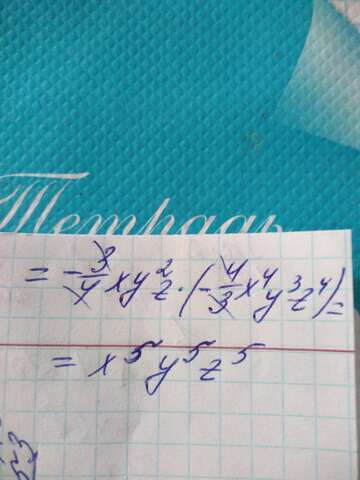 Тетрадь
= -3/4 xy²z · (-4/3 x⁴y³z⁴) =
= x⁵y⁵z⁵